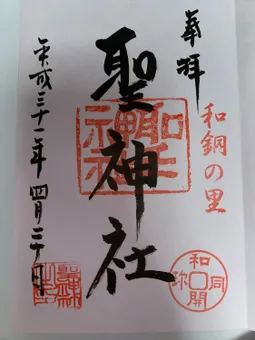 奉拝
和銅の里
聖神社
平成三十一年 四月二十日
和同開珎